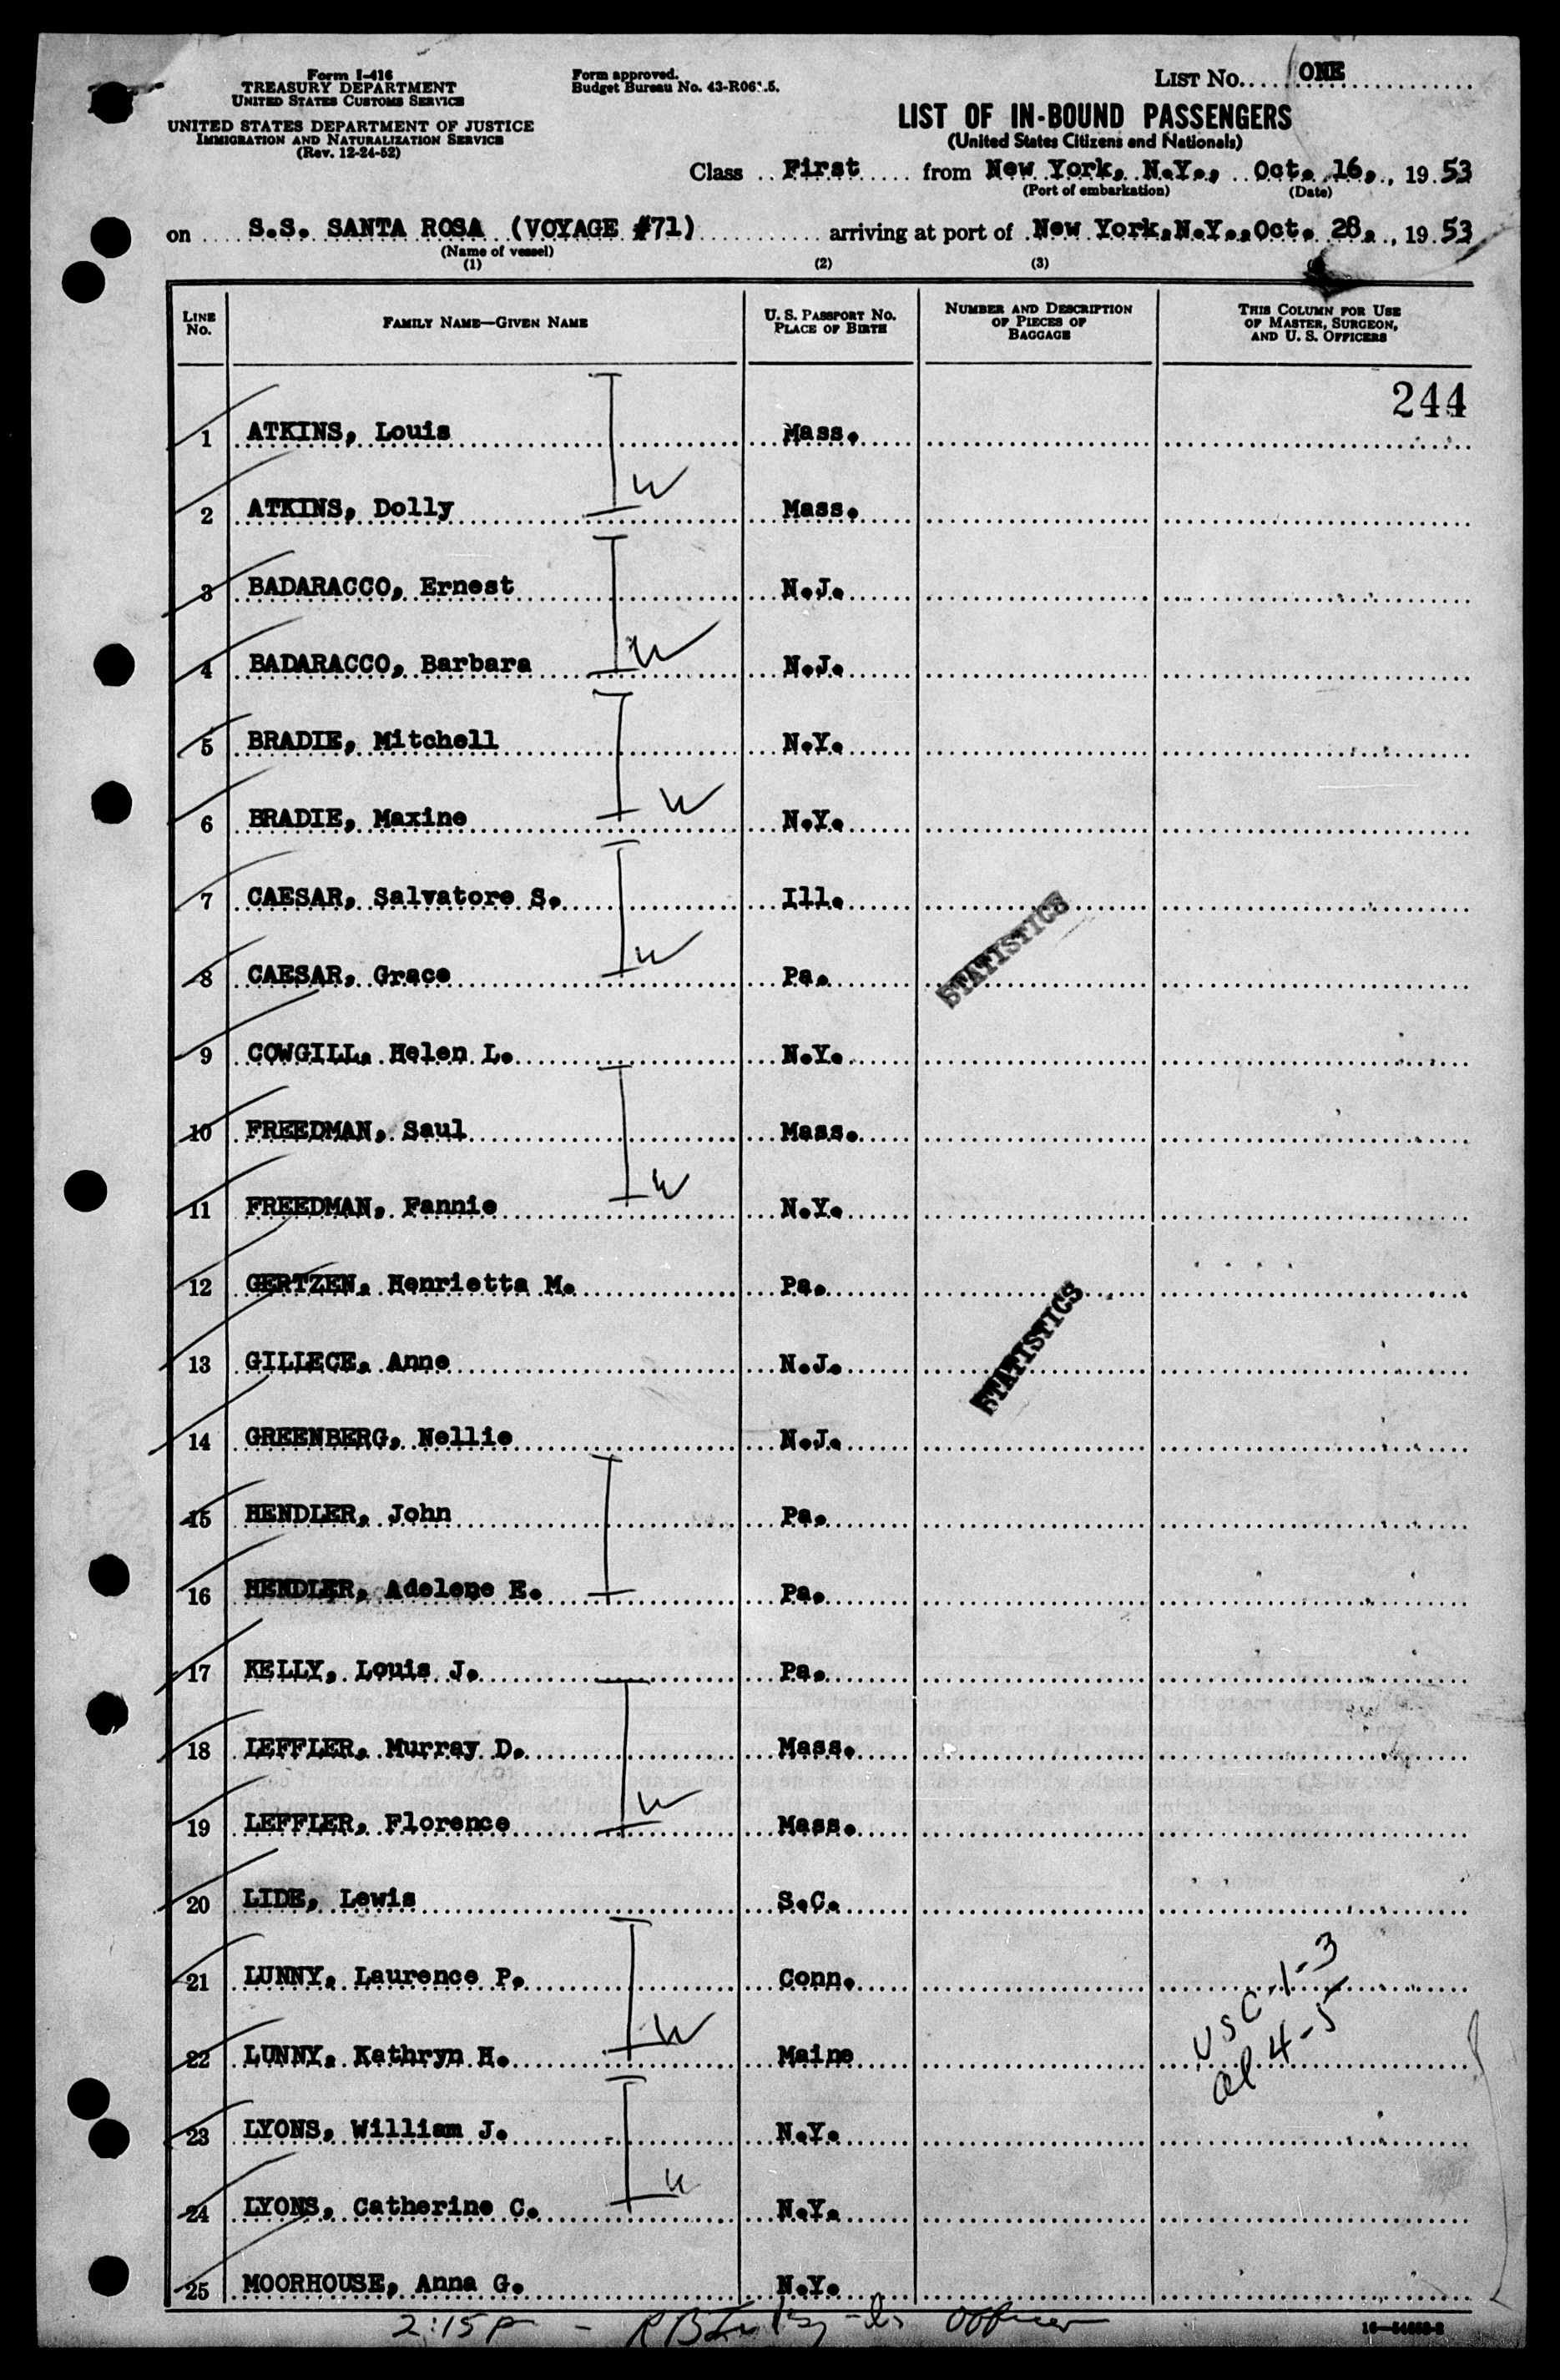 Form I-416
TREASURY DEPARTMENT
UNITED STATES CUSTOMS SERVICE
UNITED STATES DEPARTMENT OF JUSTICE
IMMIGRATION AND NATURALIZATION SERVICE
(Rev. 12-24-52)
Form approved.
Budget Bureau No.
LIST NO. ONE
LIST OF IN-BOUND PASSENGERS
(United States Citizens and Nationals)
Class First from New York, N.Y., Oct. 16, , 19 53
(Port of embarkation) (Date)
on S.S. SANTA ROSA (VOYAGE #71) arriving at port of New York,N.Y.,Oct. 28, , 19 53
(Name of vessel)
(1) (2) (3)
LINE NO. FAMILY NAME—GIVEN NAME U. S. PASSPORT NO. PLACE OF BIRTH NUMBER AND DESCRIPTION OF PIECES OF BAGGAGE THIS COLUMN FOR USE OF MASTER, SURGEON, AND U. S. OFFICERS
244
1 ATKINS, Louis Mass.
W
2 ATKINS, Dolly Mass.
3 BADARACCO, Ernest N.J.
4 BADARACCO, Barbara W N.J.
5 BRADIE, Mitchell N.Y.
6 BRADIE, Maxine W N.Y.
7 CAESAR, Salvatore S. Ill.
STATISTICS
8 CAESAR, Grace W Pa.
9 COWGILL, Helen L. N.Y.
10 FREEDMAN, Saul Mass.
11 FREEDMAN, Fannie W N.Y.
12 GERTZEN, Henrietta M. Pa.
STATISTICS
13 GILLECE, Anne N.J.
14 GREENBERG, Nellie N.J.
15 HENDLER, John Pa.
16 HENDLER, Adelene E. Pa.
17 KELLY, Louis J. Pa.
18 LEFFLER, Murray D. Mass.
19 LEFFLER, Florence W Mass.
20 LIDE, Lewis S.C.
21 LUNNY, Laurence P. Conn.
USC 1-3
22 LUNNY, Kathryn H. W Maine
al 4-5
23 LYONS, William J. N.Y.
24 LYONS, Catherine C. W N.Y.
25 MOORHOUSE, Anna G. N.Y.
2:15 P - Officer